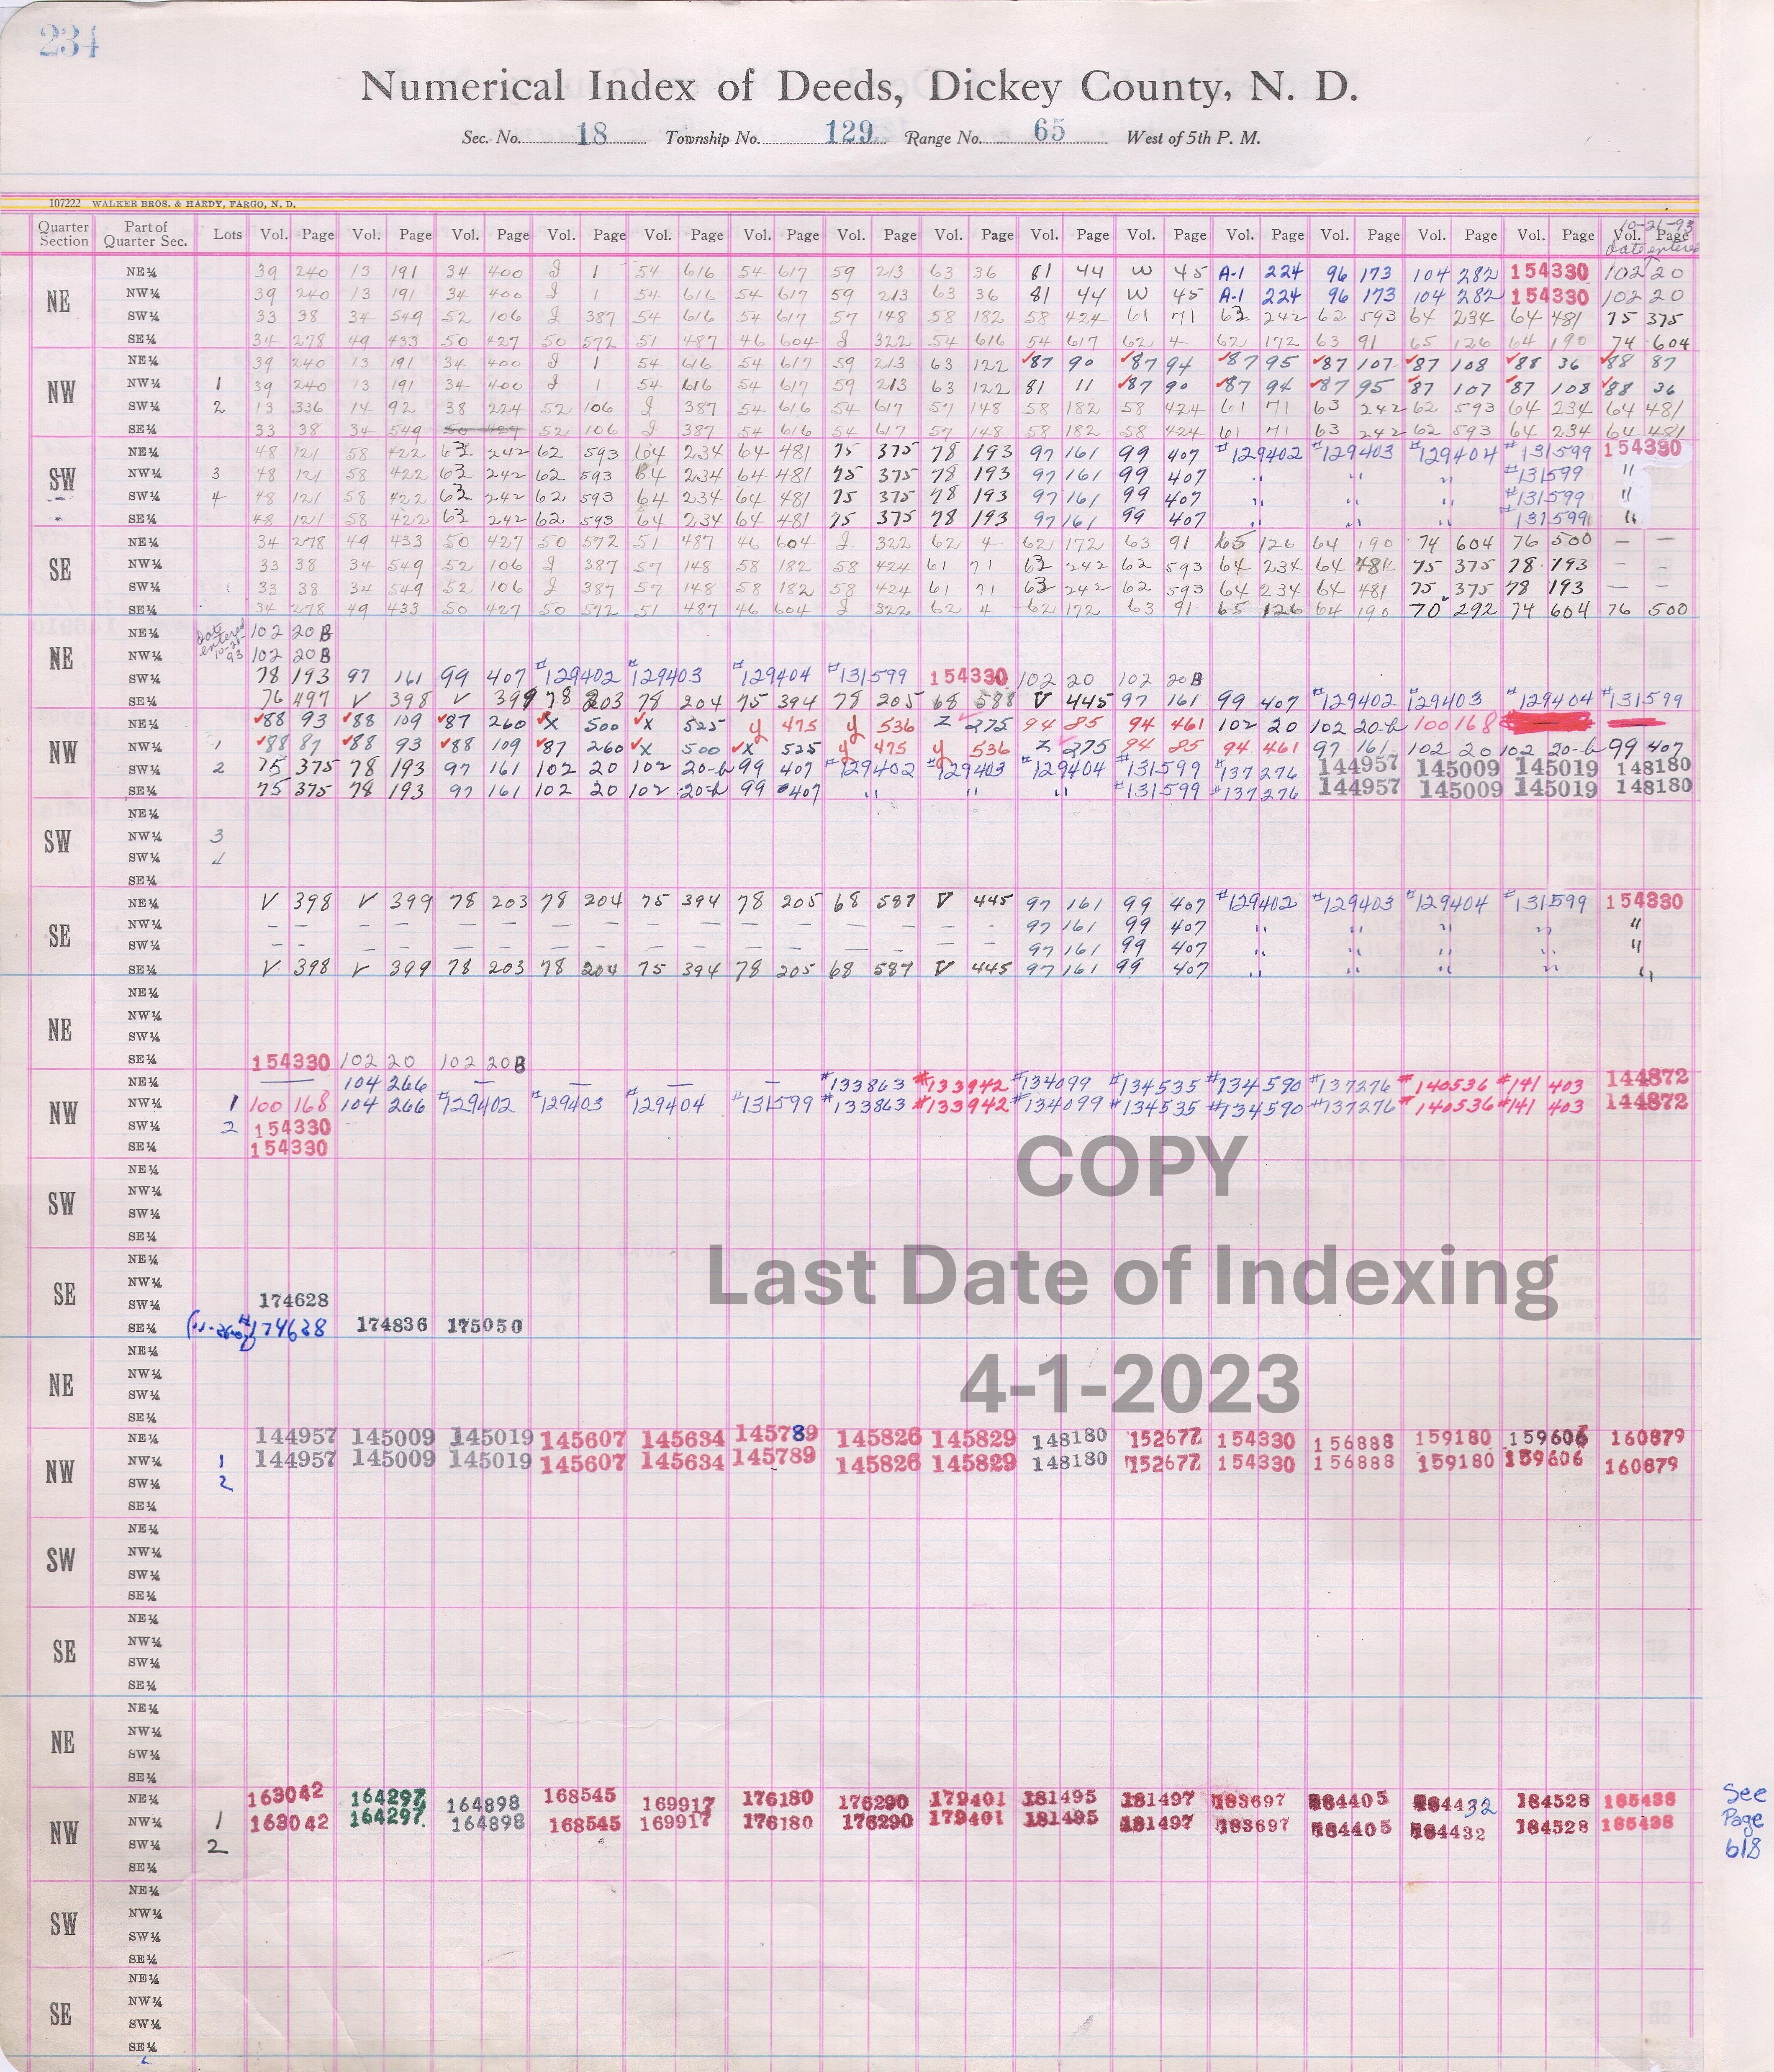 234
Numerical Index of Deeds, Dickey County, N. D.
Sec. No. 18 Township No. 129 Range No. 65 West of 5th P. M.
107222 WALKER BROS. & HARDY, FARGO, N. D.
10-21-93
Date entered
Quarter Section Part of Quarter Sec. Lots Vol. Page Vol. Page Vol. Page Vol. Page Vol. Page Vol. Page Vol. Page Vol. Page Vol. Page Vol. Page Vol. Page Vol. Page Vol. Page Vol. Page Vol. Page
NE
NE¼ 39 240 13 191 34 400 J 1 54 616 54 617 59 213 63 36 81 44 W 45 A-1 224 96 173 104 282 154330 102 20
NW¼ 39 240 13 191 34 400 J 1 54 616 54 617 59 213 63 36 81 44 W 45 A-1 224 96 173 104 282 154330 102 20
SW¼ 33 38 34 549 52 106 J 387 54 616 54 617 57 148 58 182 58 424 61 71 63 242 62 593 64 234 64 481 75 375
SE¼ 34 278 49 433 50 427 50 572 51 487 46 604 J 322 54 616 54 617 62 4 62 172 63 91 65 126 64 190 74 604
NW
NE¼ 39 240 13 191 34 400 J 1 54 616 54 617 59 213 63 122 ✓87 90 ✓87 94 ✓87 95 ✓87 107 ✓87 108 ✓88 36 ✓88 87
NW¼ 1 39 240 13 191 34 400 J 1 54 616 54 617 59 213 63 122 81 11 ✓87 90 ✓87 94 ✓87 95 ✓87 107 ✓87 108 ✓88 36
SW¼ 2 13 336 14 92 38 224 52 106 J 387 54 616 54 617 57 148 58 182 58 424 61 71 63 242 62 593 64 234 64 481
SE¼ 33 38 34 549 50 427 52 106 J 387 54 616 54 617 57 148 58 182 58 424 61 71 63 242 62 593 64 234 64 481
SW
NE¼ 48 121 58 422 63 242 62 593 64 234 64 481 75 375 78 193 97 161 99 407 #129402 #129403 #129404 #131599 154330
NW¼ 3 48 121 58 422 63 242 62 593 64 234 64 481 75 375 78 193 97 161 99 407 " " " #131599 "
SW¼ 4 48 121 58 422 63 242 62 593 64 234 64 481 75 375 78 193 97 161 99 407 " " " #131599 "
SE¼ 48 121 58 422 63 242 62 593 64 234 64 481 75 375 78 193 97 161 99 407 " " " #131599 "
SE
NE¼ 34 278 49 433 50 427 50 572 51 487 46 604 J 322 62 4 62 172 63 91 65 126 64 190 74 604 76 500 — —
NW¼ 33 38 34 549 52 106 J 387 57 148 58 182 58 424 61 71 63 242 62 593 64 234 64 481 75 375 78 193 — —
SW¼ 33 38 34 549 52 106 J 387 57 148 58 182 58 424 61 71 63 242 62 593 64 234 64 481 75 375 78 193 — —
SE¼ 34 278 49 433 50 427 50 572 51 487 46 604 J 322 62 4 62 172 63 91 65 126 64 190 70 292 74 604 76 500
Date entered 10-21-93
NE
NE¼ 102 20B
NW¼ 102 20B
SW¼ 78 193 97 161 99 407 #129402 #129403 #129404 #131599 154330 102 20 102 20B
SE¼ 76 497 V 398 V 399 78 203 78 204 75 394 78 205 68 588 V 445 97 161 99 407 #129402 #129403 #129404 #131599
NW
NE¼ ✓88 93 ✓88 109 ✓87 260 ✓X 500 ✓X 525 y 475 y 536 Z 275 94 85 94 461 102 20 102 20-b 100 168
NW¼ 1 ✓88 87 ✓88 93 ✓88 109 ✓87 260 ✓X 500 ✓X 525 y 475 y 536 Z 275 94 85 94 461 97 161 102 20 102 20-b 99 407
SW¼ 2 75 375 78 193 97 161 102 20 102 20-b 99 407 #129402 #129403 #129404 #131599 #137276 144957 145009 145019 148180
SE¼ 75 375 78 193 97 161 102 20 102 20-b 99 407 " " " #131599 #137276 144957 145009 145019 148180
SW
NE¼
NW¼ 3
SW¼ 4
SE¼
SE
NE¼ V 398 V 399 78 203 78 204 75 394 78 205 68 587 V 445 97 161 99 407 #129402 #129403 #129404 #131599 154330
NW¼ — — — — — — — — — — — — — — — — 97 161 99 407 " " " " "
SW¼ — — — — — — — — — — — — — — — — 97 161 99 407 " " " " "
SE¼ V 398 V 399 78 203 78 204 75 394 78 205 68 587 V 445 97 161 99 407 " " " " "
NE
NE¼
NW¼
SW¼
SE¼ 154330 102 20 102 20B
NW
NE¼ — 104 266 — — — — #133863 #133942 #134099 #134535 #134590 #137276 #140536 #141 403 144872
NW¼ 1 100 168 104 266 #129402 #129403 #129404 #131599 #133863 #133942 #134099 #134535 #134590 #137276 #140536 #141 403 144872
SW¼ 2 154330
SE¼ 154330
SW
NE¼
NW¼
SW¼
SE¼
SE
NE¼
NW¼
SW¼ 174628
SE¼ #174638 174836 175050
COPY
Last Date of Indexing
4-1-2023
NE
NE¼
NW¼
SW¼
SE¼
NW
NE¼ 144957 145009 145019 145607 145634 145789 145826 145829 148180 152677 154330 156888 159180 159606 160879
NW¼ 1 144957 145009 145019 145607 145634 145789 145826 145829 148180 152677 154330 156888 159180 159606 160879
SW¼ 2
SE¼
SW
NE¼
NW¼
SW¼
SE¼
SE
NE¼
NW¼
SW¼
SE¼
NE
NE¼
NW¼
SW¼
SE¼
NW
NE¼ 163042 164297 164898 168545 169917 176180 176290 179401 181495 181497 183697 184405 184432 184528 185438
NW¼ 1 163042 164297 164898 168545 169917 176180 176290 179401 181495 181497 183697 184405 184432 184528 185438
SW¼ 2
SE¼
See
Page
618
SW
NE¼
NW¼
SW¼
SE¼
SE
NE¼
NW¼
SW¼
SE¼